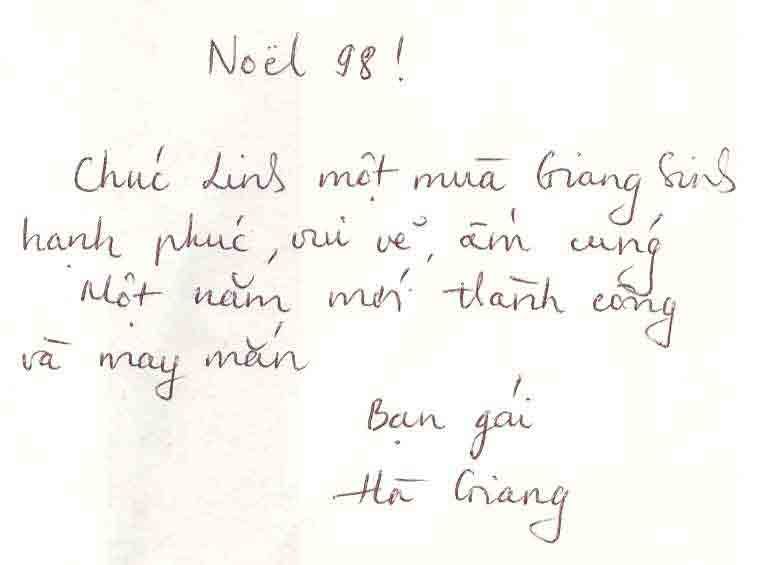 Noël 98!
Chúc Linh một mùa Giang Sinh
hạnh phúc, vui vẻ, ấm cúng
Một năm mới thành công
và may mắn
Bạn gái
Hà Giang